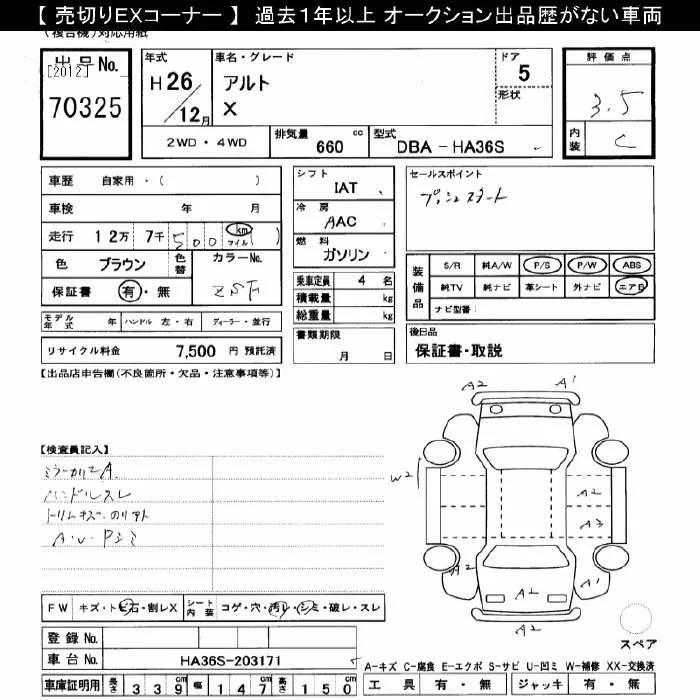 【 売切りEXコーナー 】 過去1年以上 オークション出品歴がない車両
(複合機)対応用紙
出品No.
[2012]
70325
年式
H26
/12月
車名・グレード
アルト
X
ドア
5
形状
2WD・4WD
排気量
660 cc
型式
DBA - HA36S
評価点
3.5
内装
C
車歴 自家用・( )
車検 年 月
走行 12万 7千 500 km マイル ( )
色 ブラウン 色替
カラーNo.
ZSF
保証書 有・無
モデル年式 年 ハンドル 左・右 ディーラー・並行
リサイクル料金 7,500 円 預託済
シフト
IAT
冷房
AAC
燃料
ガソリン
乗車定員 4 名
積載量 kg
総重量 kg
書類期限
月 日
セールスポイント
プッシュスタート
装備品
S/R 純A/W P/S P/W ABS
純TV 純ナビ 革シート 外ナビ エアB
ナビ型番:
後日品
保証書・取説
【出品店申告欄(不良箇所・欠品・注意事項等)】
【検査員記入】
ハンドルスレ
A・U・Pシミ
A2 A1
W2
A2
A2
A2 A1
A2
A2
スペア
FW キズ・トビ石・割レX シート内装 コゲ・穴・汚レ・シミ・破レ・スレ
登録No.
車台No. HA36S-203171
車庫証明用 長さ 339cm 幅 147cm 高さ 150cm
A-キズ C-腐食 E-エクボ S-サビ U-凹ミ W-補修 XX-交換済
工具 有・無 ジャッキ 有・無